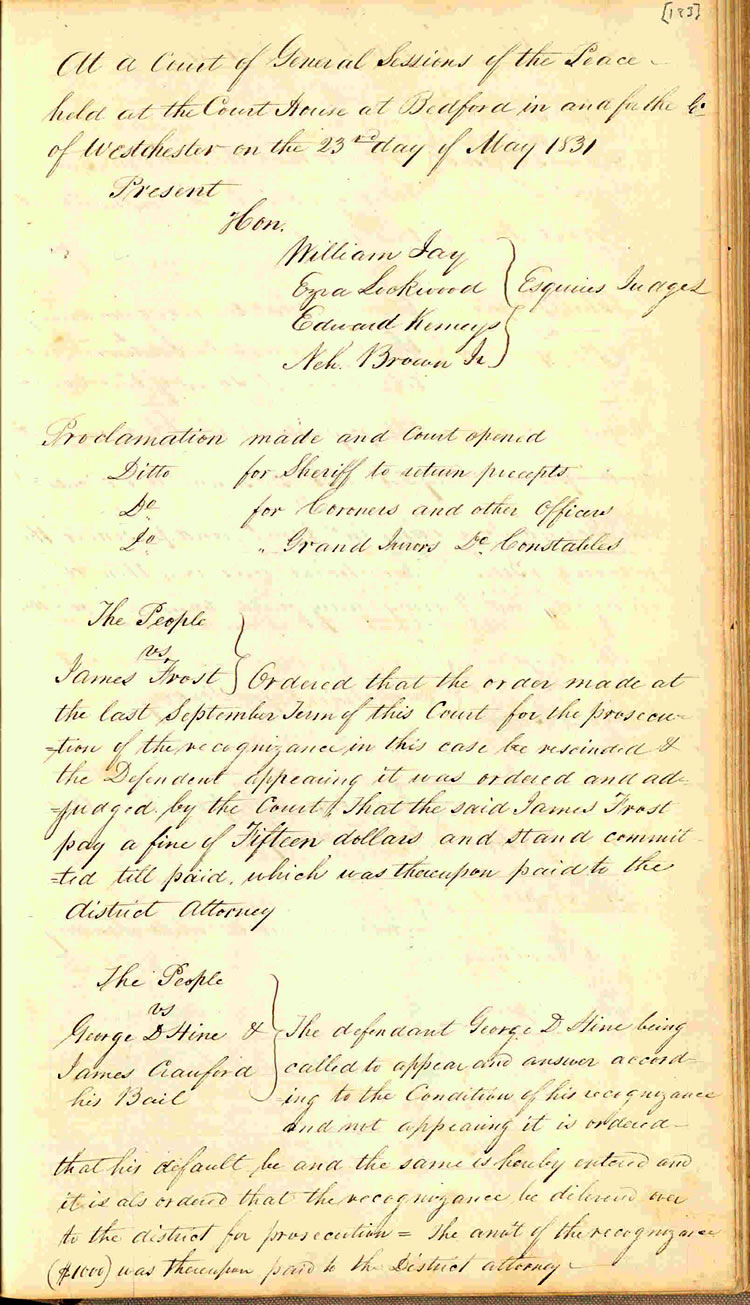 [183]
At a Court of General Sessions of the Peace
held at the Court House at Bedford in and for the Co
of Westchester on the 23rd day of May 1831
Present
Hon.
William Jay
Ezra Lockwood } Esquires Judges
Edward Kemeys
Neh. Brown Jr
Proclamation made and Court opened
Ditto for Sheriff to return precepts
Do for Coroners and other Officers
Do " Grand Jurors Do Constables
The People
vs
James Frost } Ordered that the order made at
the last September Term of this Court for the prosecu=
=tion of the recognizance in this case be rescinded &
the Defendent appearing it was ordered and ad=
=judged by the Court, That the said James Frost
pay a fine of Fifteen dollars and stand commit-
=ted till paid, which was thereupon paid to the
district Attorney
The People
vs
George D Hine & } The defendant George D. Hine being
James Crauford called to appear and answer accord-
his Bail ing to the Condition of his recognizance
and not appearing it is ordered-
that his default be and the same is hereby entered and
it is als ordered that the recognizance be delivered over
to the district for prosecution = The amt of the recognizance
($1000) was thereupon paid to the District attorney -